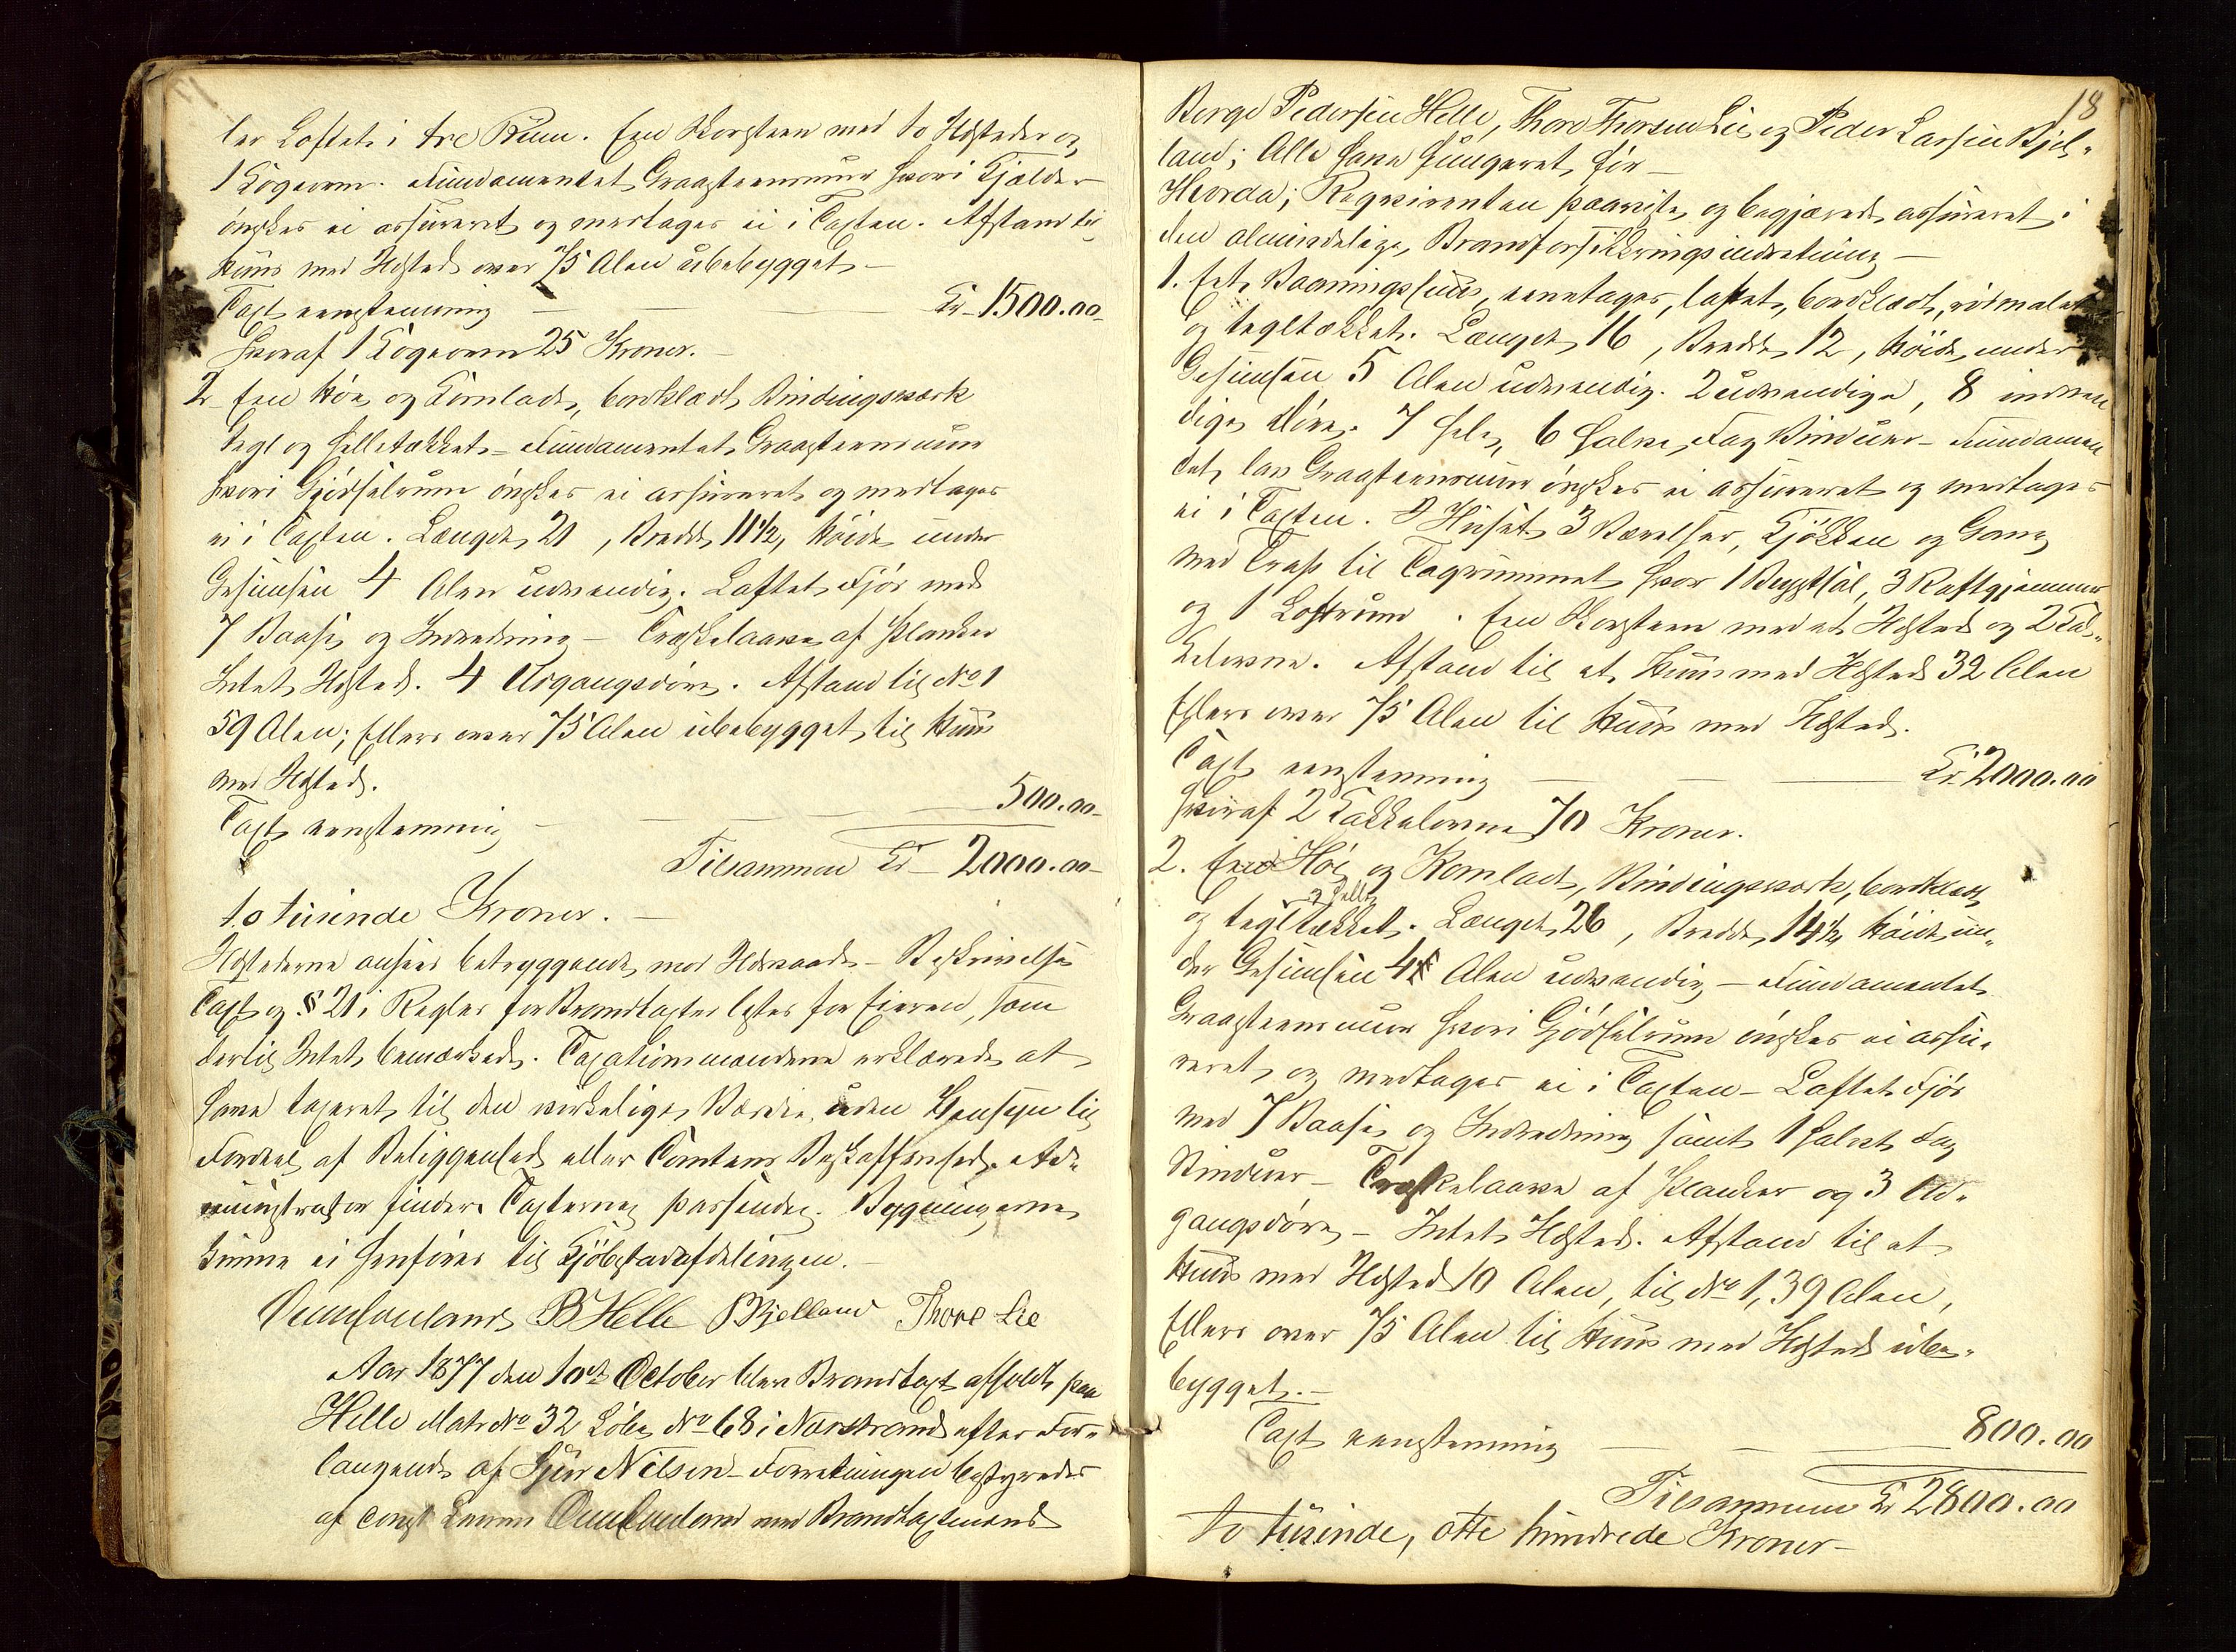 ler Loftet i tre Rum. Een Skorsteen med to Ildsteder og
1 Kogeovn. Fundamentet Graasteensmuur hvori Kjelder
ønskes ei assureret og medtages ei i Taxten. Afstand til
Huus med Ildsted over 75 Alen ubebygget –
Taxt eenstemmig – Kr 1500.00
hvoraf 1 Kogeovn 25 Kroner. –
2 Een Høe og Kornlade, bordklædt Bindingsværk
tegl og helletækket – Fundamentet Graasteensmuur
hvori Gjødselrum ønskes ei assureret og medtages
ei i Taxten. Længde 21, Bredde 11½, Høide under
Gesimsen 4 Alen udvendig. Loftet Fjøs med
7 Baase og Indredning – Træskelaave af Planker
Intet Ildsted. 4 Udgangsdøre. Afstand til No 1
59 Alen; Ellers over 75 Alen ubebygget til Huus
med Ildsted.
Taxt eenstemmig – 500.00
Tilsammen Kr 2000.00
to tusinde Kroner. –
Ildstederne ansees betryggende mod Ildsvaade – Beskrivelse
Taxt og § 21 i Regler for Brandtaxter læstes for Eieren, som
dertil Intet bemærkede. Taxationsmændene erklærede at
have taxeret til den virkelige Værdie uden Hensyn til
Fordel af Beliggenhed eller Tomtens Beskaffenhed. Ad-
ministrator finder Taxterne passende. Bygningerne
kunne ei henføres til Kjøbstadafdelingen. –
BHelle PBjelland Thore Lie
Aar 1877 den 10de October blev Brandtaxt afholdt paa
Helle Matr No 32 Løbe No 68 i Narstrand efter For-
langende af Sjur Nilsen – Forretningen bestyredes
af const Lensm med Brandtaxtmænd
18
Børge Pedersen Helle, Thore Thorsen Lie og Peder Larsen Bjel-
land; Alle have fungeret før –
Hvorda; Reqvirenten paaviste og begjærede assureret i
den almindelige Brandforsikkringsindretning –
1. Eet Vaaningshuus, eenetages, loftet, bordklædt, rødmalet
og tegltækket. Længde 16, Bredde 12, Høide under
Gesimsen 5 Alen udvendig. 2 udvendige, 8 indven
dige Døre. 7 hele, 6 halve, Fag Vinduer – Fundamen
tet lav Graasteensmuur ønskes ei assureret og medtages
ei i Taxten. I Huset 3 Værelser, Kjøkken og Gang
med Trap til Tagrummet hvor 1 Bygtsal, 3 Koftgjemmer
og 1 Loftrum. Een Skorsteen med et Ildsted og 2 Kak-
kelovne. Afstand til et Huus med Ildsted 32 Alen
Ellers over 75 Alen til Huus med Ildsted.
Taxt eenstemmig – Kr 2000.00
hvoraf 2 Kakkelovne 70 Kroner.
2. Een Høe og Kornlade, Bindingsværk, bordklædt
og helle
og tegltækket. Længde 26, Bredde 14½, Høide un-
der Gesimsen 4 Alen udvendig – Fundamentet
Graasteensmuur hvori Gjødselrum ønskes ei assu-
reret og medtages ei i Taxten – Loftet Fjøs
med 7 Baase og Indredning samt 1 halvt Fag
Vinduer – Træskelaave af Planker og 3 Ud-
gangsdøre – Intet Ildsted. Afstand til et
Huus med Ildsted 10 Alen, til No 1, 39 Alen,
Ellers over 75 Alen til Huus med Ildsted ube-
bygget. –
Taxt eenstemmig – 800.00
Tilsammen Kr 2800.00
to tusinde, otte hundrede Kroner –